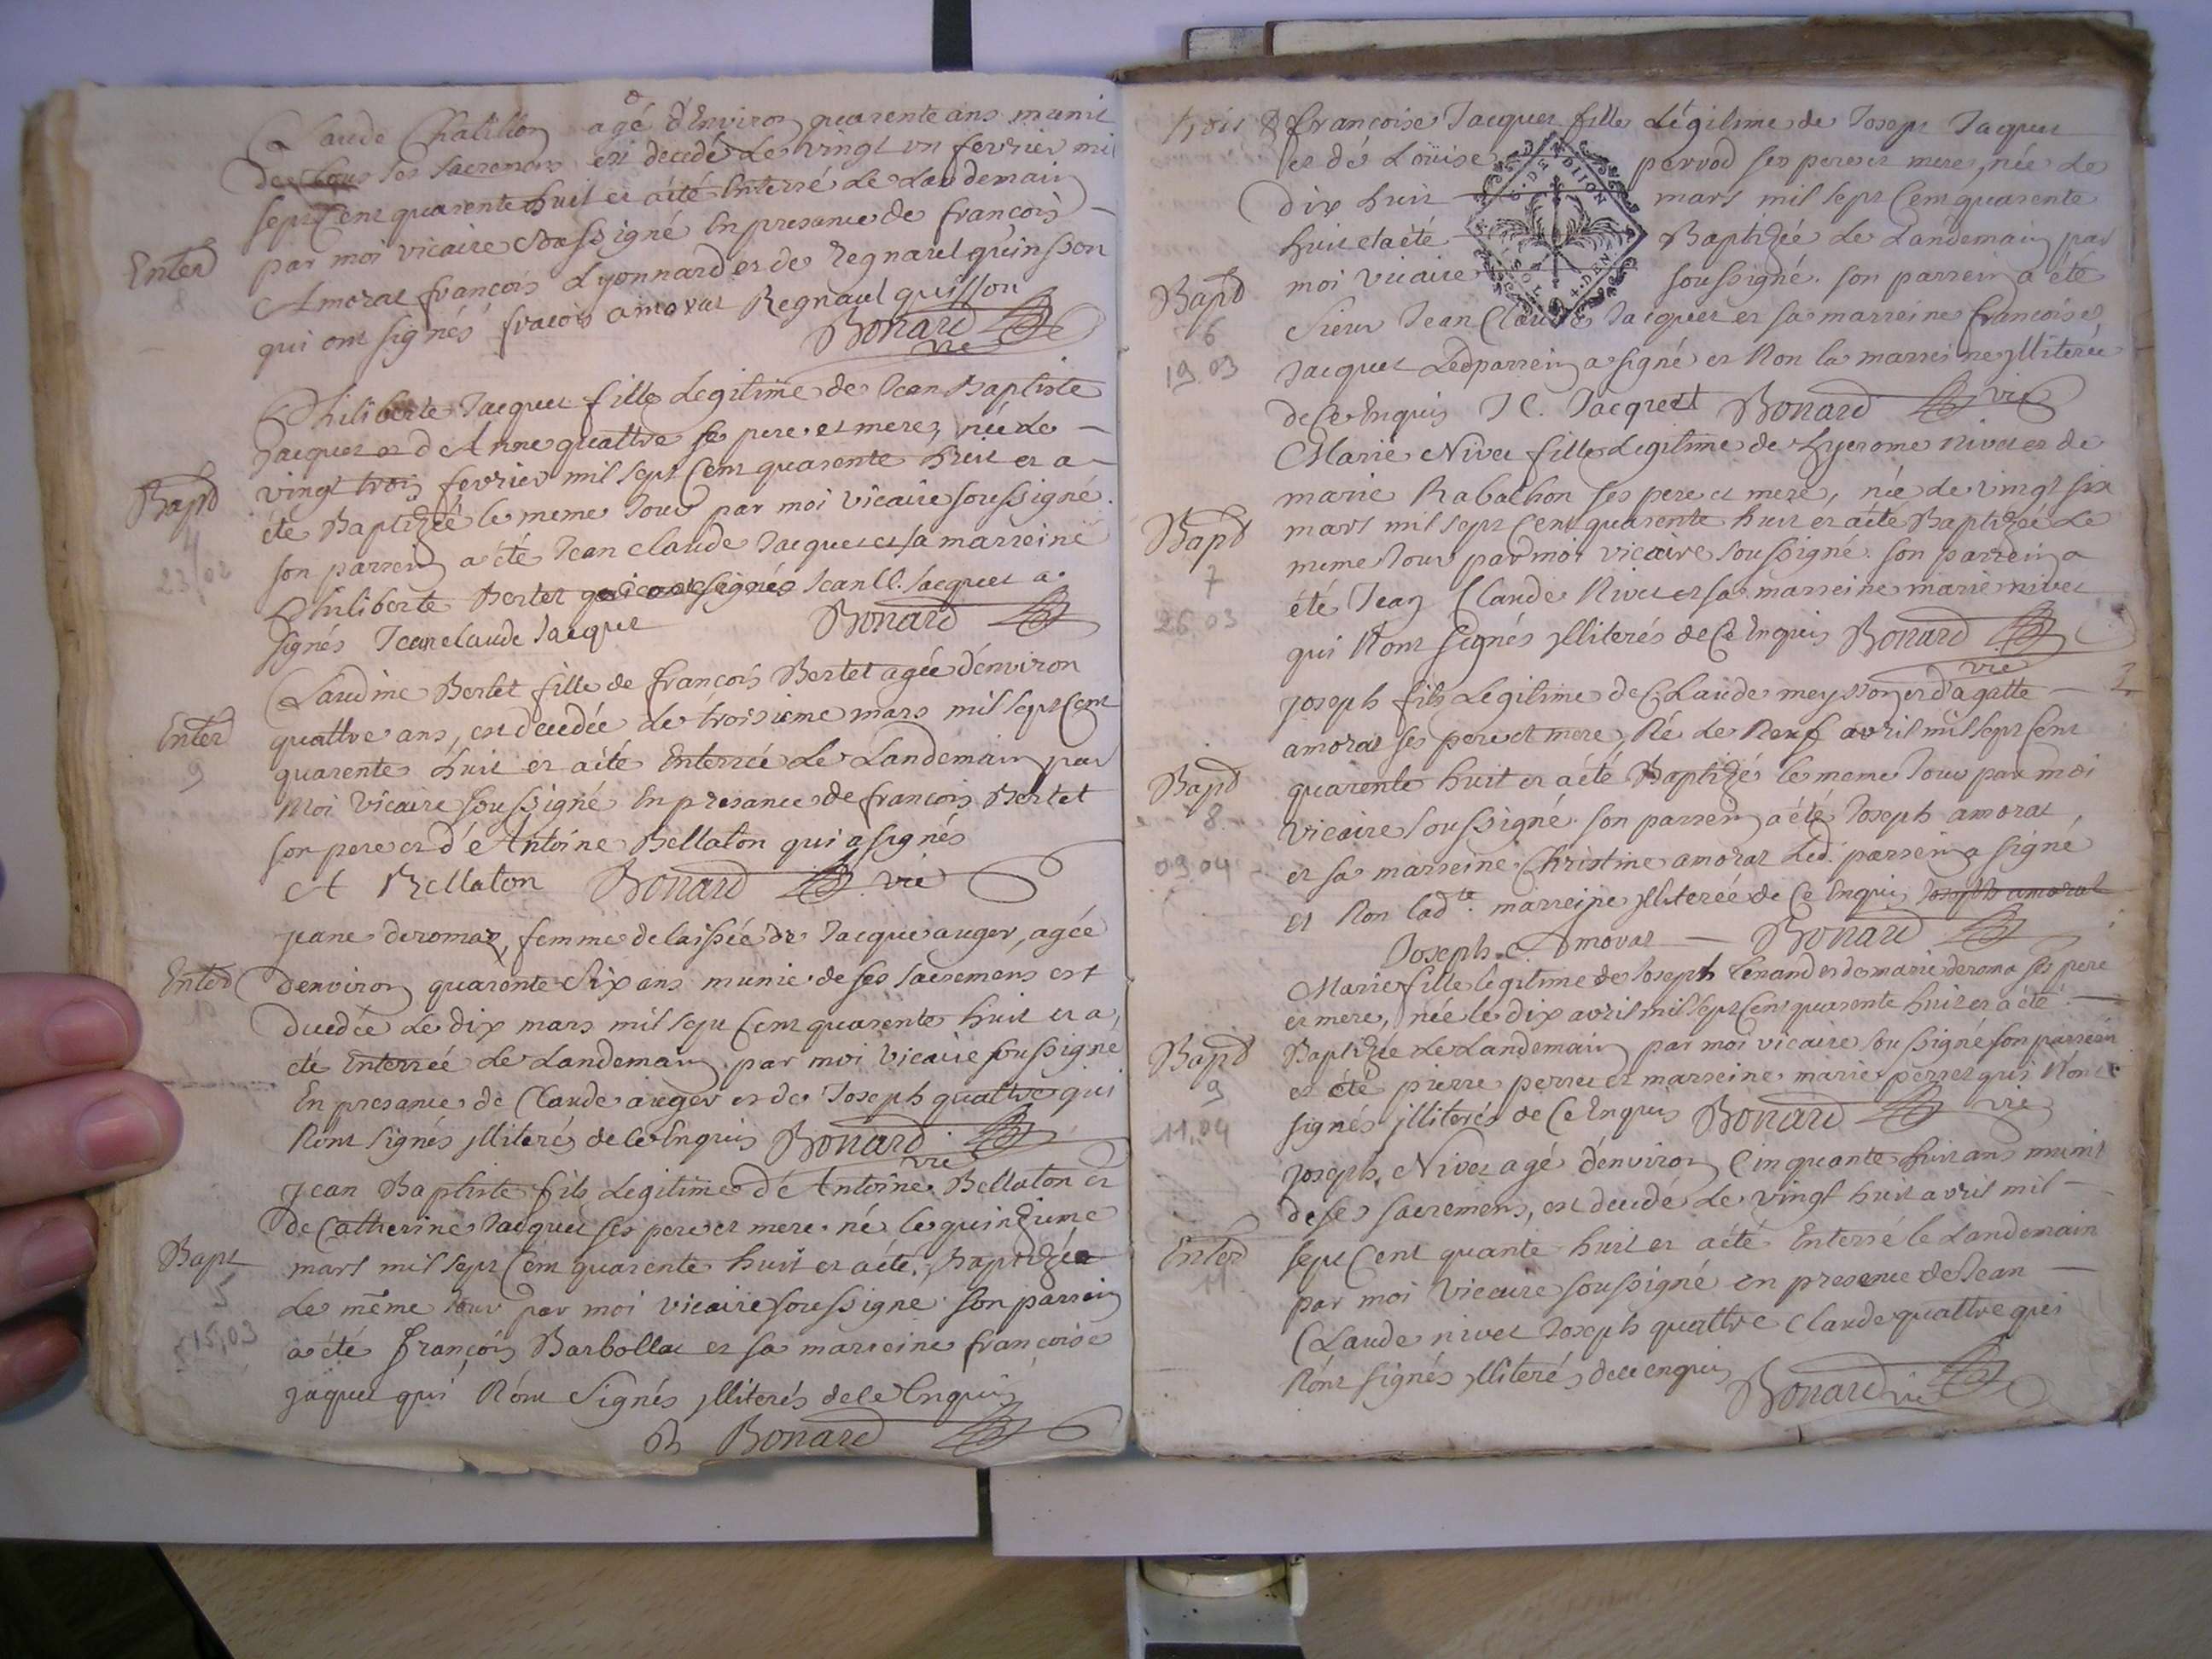 Claude Chatillon agé d'Environ quarente ans munit
de tous ses sacremens est decedé Le vingt un fevrier mil
sept Cent quarente huit et a été Enterré Le Landemain
Enterd par moi vicaire soussigné En presance de françois
8
Amorat françois Lyonnard et de regnaul quinsson
qui ont signés fracois amorat Regnaul quisson
Bonard vic
Philiberte Jacquet fille Legitime de Jean Baptiste
Jacquet et d'Anne quattre se pere et mere, née Le
Bapd vingt trois fevrier mil sept Cent quarente huit et a
4
été Baptizée le meme Jour par moi vicaire soussigné.
23/02
son parrein a été Jean claude Jacquet et sa marreine
Philiberte Bertet qui ont signés Jean Cl. Jacquet a
signés Jean claude Jacquet Bonard
Claudine Bertet fille de françois Bertet agée d'environ
Enterd quattre ans, est decedée Le troisieme mars mil sept Cent
9
quarente huit et a été Enterrée Le Landemain par
Moi Vicaire soussigné En presance de francois Bertet
son pere et d'Antoine Bellaton qui a signés
A Bellaton Bonard vic
jeane deromaz, femme delaissée de Jacque auger, agée
Enterd denviron quarente Six ans munie de ses sacremens est
10
decedée Le dix mars mil sept Cent quarente huit et a
été Enterrée Le Landemain par moi vicaire soussigné
En presance de Claude auger et de Joseph quattre qui
Nont signés illiterés de ce Enquis Bonard vic
jean Baptiste fils Legitime d'Antoine Bellaton et
de Catherine Jacquet ses pere et mere né le quinzieme
Bapt mars mil sept Cent quarente huit et a été Baptizée
5
Le même Jour par moi vicaire soussigné son parrein
15/03
a été françois Barbollat et sa marreine françoise
jaquet qui Nont Signés illiterés de ce Enquis
B Bonard
trois & françoise Jacquet fille Légitime de Joseph Jaquet
et de Loüise pervod ses pere et mere, née Le
G. DE DIJON
dix huit mars mil sept Cent quarente
huit et a été Baptizée Le Landemain par
Bapd moi vicaire soussigné. son parrein a été
6
Sieur Jean Claude Jacquet et sa marreine françoise
19.03
Jacquet Led parrein a signé et Non la marreine illiterée
de Ce Enquis J C. Jacquet Bonard vic
Marie Nivet fille Legitime de hyerome nivet et de
marie Rabachon ses pere et mere, née Le vingt six
Bapd mars mil sept Cent quarente huit et a été Baptizée Le
7
meme Jour par moi vicaire soussigné. son parrein a
26 03
été Jean Claude Nivet et sa marreine marie nivet
qui Nont Signés illiterés de Ce Enquis Bonard vic
joseph fils Legitime de Claude meysson et d'agatte
2
amorat ses pere et mere, Né Le Neuf avril mil sept Cent
Bapd quarente huit et a été Baptizé le meme Jour par moi
8
vicaire soussigné. son parrein a été Joseph amorat,
09 04
et sa marreine Christine amorat Led. parrein a signé
et Non ladte. marreine illiterée de Ce Enquis Joseph amorat
Joseph Amorat Bonard
Marie fille legitime de Joseph tenand et de marie deroma ses pere
et mere, née le dix avril mil sept Cent quarente huit et a été
Bapd Baptizée Le Landemain par moi vicaire soussigné son parrein
9
et été pierre perret et marreine marie perret qui Nont
11.04
signés illiterés de Ce Enquis Bonard vic
joseph Nivet agé d'environ Cinquante huit ans munit
de ses sacremens, est decedé Le vingt huit avril mil
Enterd sept Cent quante huit et a été Enterré le Landemain
11
par moi Vicaire soussigné en presence de Jean
Claude nivet Joseph quattre Claude quattre qui
Nont signés illiterés de ce enquis
Bonard vic